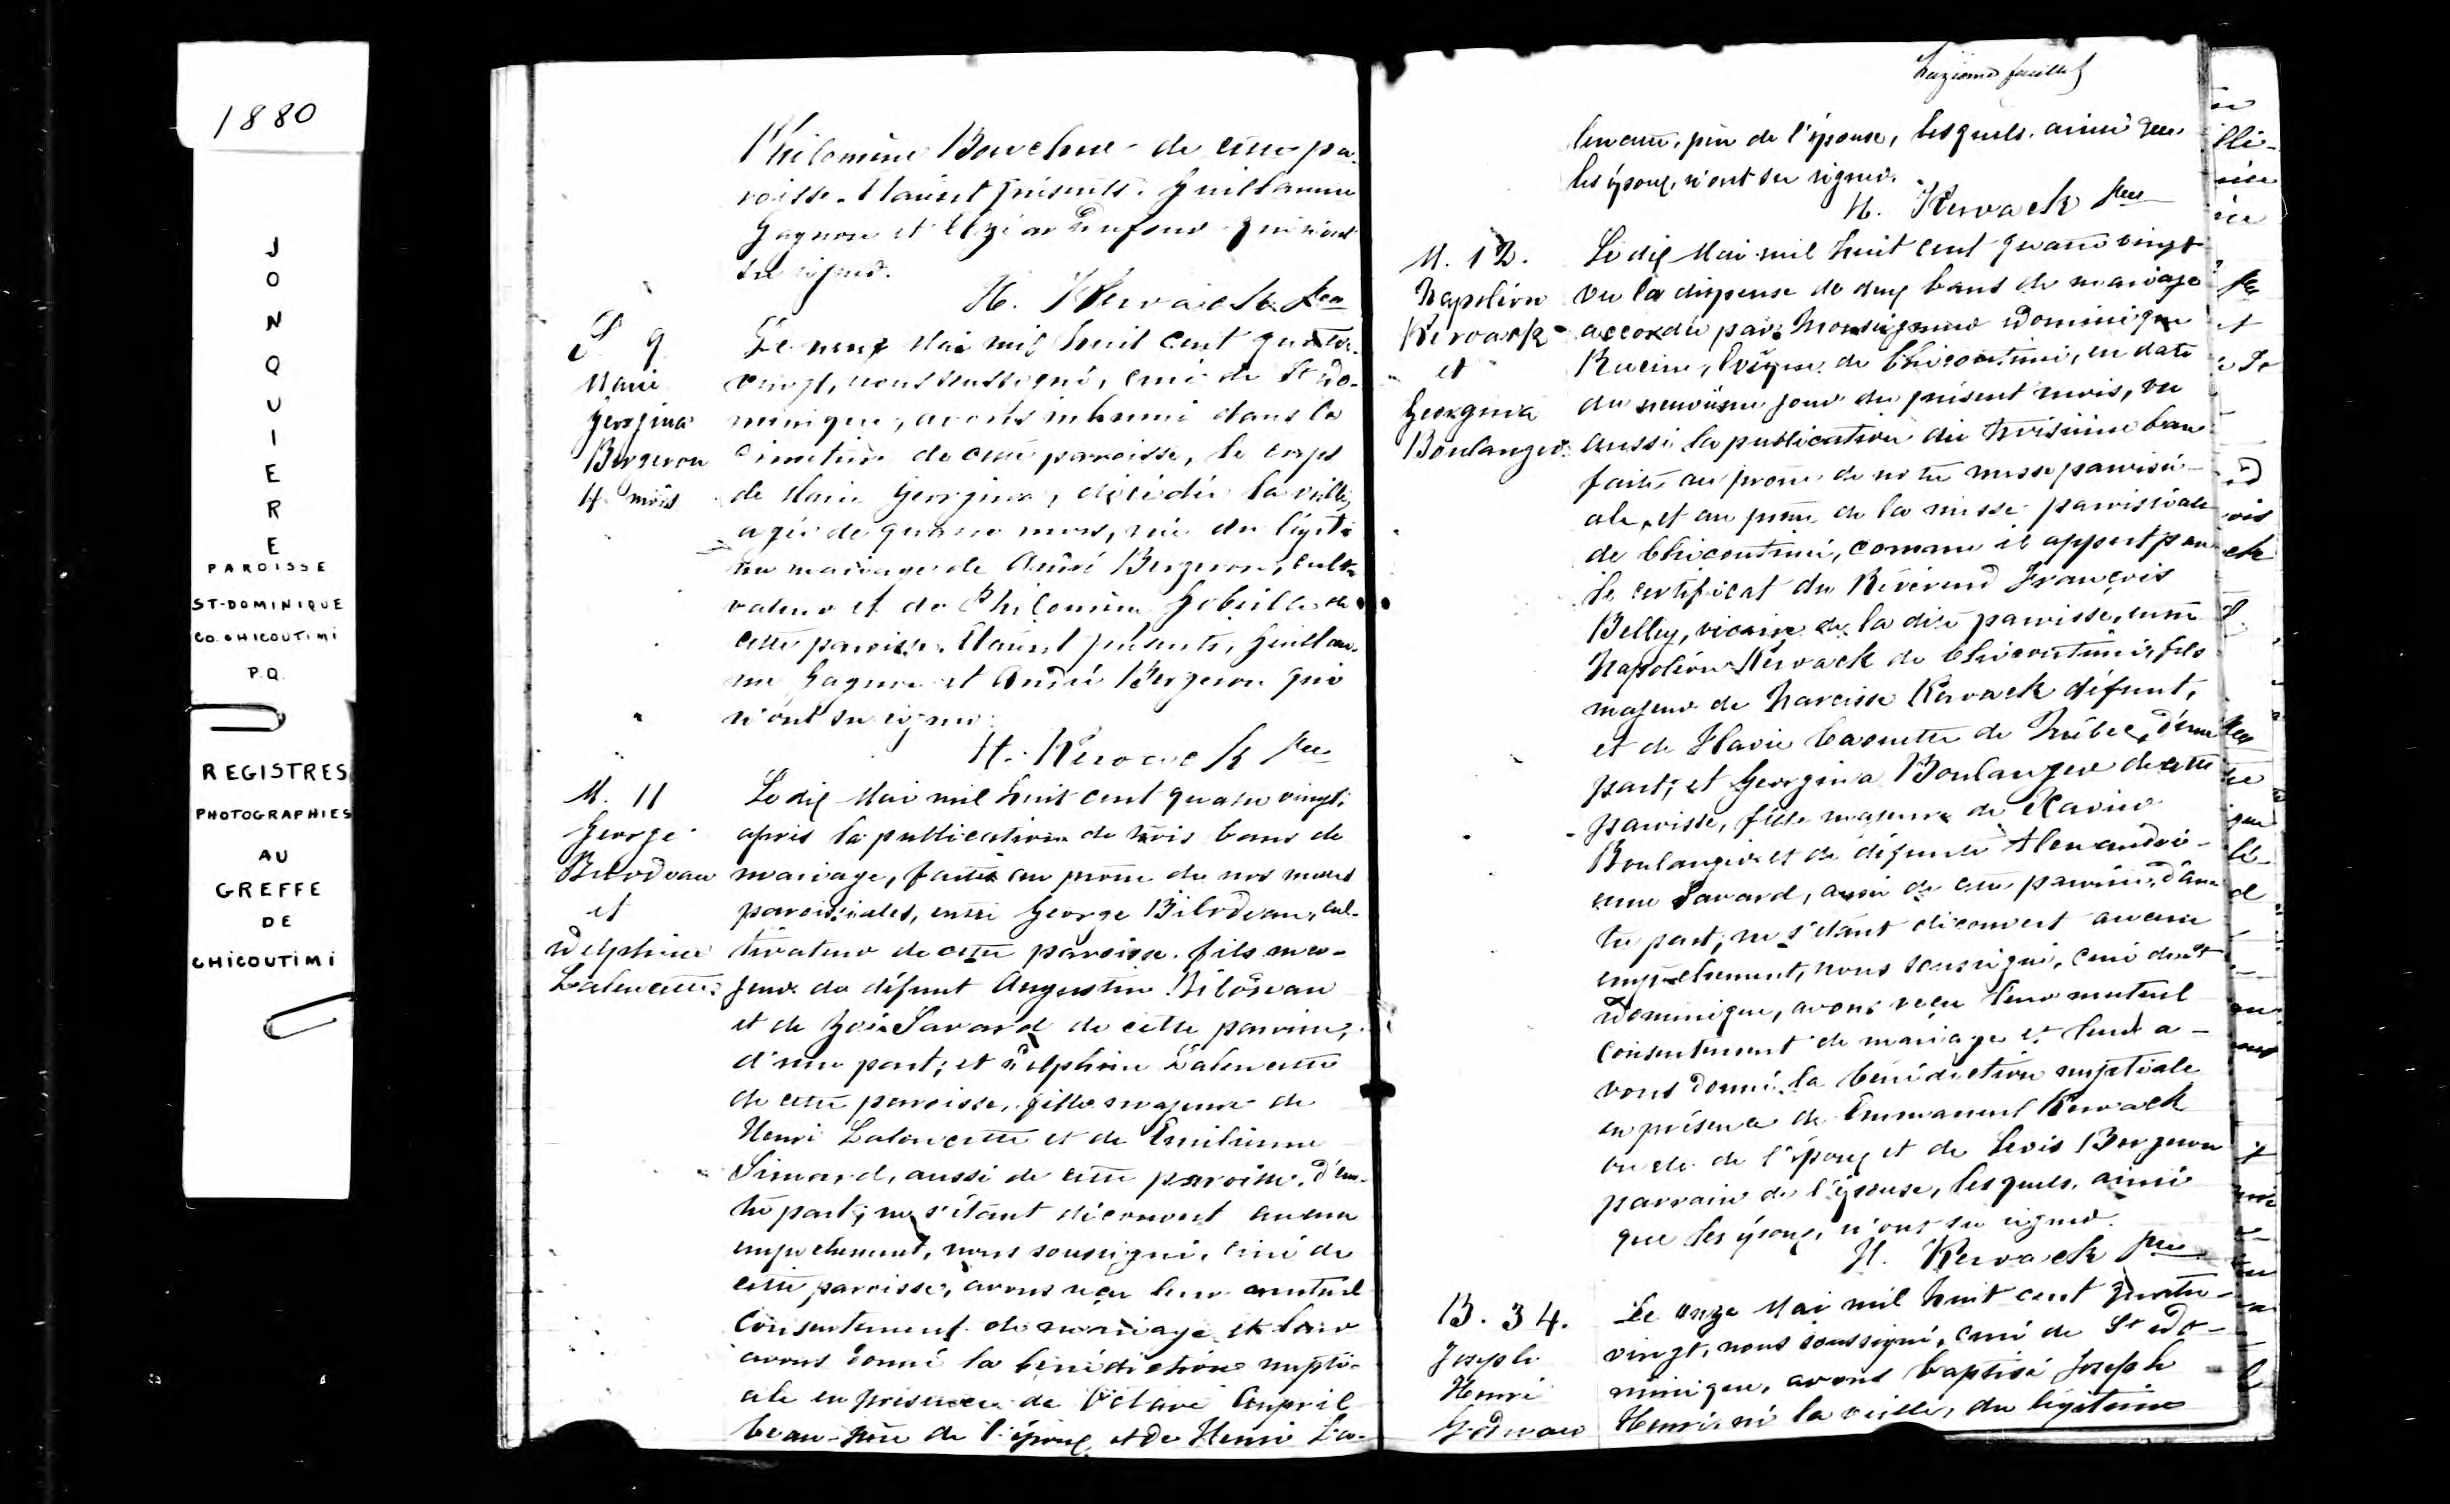 1880
JONQUIERE
PAROISSE
ST-DOMINIQUE
CO. CHICOUTIMI
P.Q.
REGISTRES
PHOTOGRAPHIES
AU
GREFFE
DE
CHICOUTIMI
Philomène de cette pa-
roisse. Etaient présents, Guillaume
Gagnon et qui n'ont
su signer.
H. Kérouack Ptre
S. 9
Marie
Georgina
Bergeron
4 mois
Le neuf Mai mil huit cent quatre-
vingt, nous soussigné, curé de St Do-
minique, avons inhumé dans le
cimetière de cette paroisse, le corps
de Marie Georgina, décédée la veille,
agée de quatre mois, née du légiti-
me mariage de André Bergeron, culti-
vateur et de Philomène Gobeille de
cette paroisse. Etaient présents, Guillau-
me Gagnon et André Bergeron qui
n'ont su signer.
H. Kérouack Ptre
M. 11
George
Bilodeau
et
Delphine
Lalancette
Le dix Mai mil huit cent quatre vingt,
après la publication de trois bans de
mariage, faite au prône de nos messes
paroissiales, entre George Bilodeau, cul-
tivateur de cette paroisse, fils ma-
jeur de défunt Augustin Bilodeau
et de Zoé Savard de cette paroisse,
d'une part; et Delphine Lalancette
de cette paroisse, fille majeure de
Henri Lalancette et de Emilienne
Simard, aussi de cette paroisse, d'au-
tre part; ne s'étant découvert aucun
empêchement, nous soussigné, curé de
cette paroisse, avons reçu leur mutuel
consentement de mariage et leur
avons donné la bénédiction nupti-
ale en présence de Octave
beau-père de l'époux et de Henri La-
feuillet
lancette, père de l'épouse, lesquels, ainsi que
les époux, n'ont su signer.
H. Kérouack Ptre
M. 12.
Napoléon
Kérouack
et
Georgina
Boulanger
Le dix Mai mil huit cent quatre vingt
vu la dispense de deux bans de mariage
accordée par Monseigneur Dominique
Racine, Evêque de Chicoutimi, en date
du neuvième jour du présent mois, vu
aussi la publication du troisième ban
faite au prône de notre messe paroissi-
ale, et au prône de la messe paroissiale
de Chicoutimi, comme il appert par
le certificat du Révérend François
Belley, vicaire de la dite paroisse, entre
Napoléon Kérouack de Chicoutimi, fils
majeur de Narcisse Kérouack défunt,
et de Flavie Caouette de Québec, d'une
part; et Georgina Boulanger de cette
paroisse, fille majeure de Xavier
Boulanger et de défunte Alexandri-
enne Savard, aussi de cette paroisse, d'au-
tre part; ne s'étant découvert aucun
empêchement, nous soussigné, curé de St
Dominique, avons reçu leur mutuel
consentement de mariage et leur a-
vons donné la bénédiction nuptiale
en présence de Emmanuel Kérouack
oncle de l'époux et de Louis Bergeron
parrain de l'épouse, lesquels, ainsi
que les époux, n'ont su signer.
H. Kérouack Ptre
B. 34.
Joseph
Henri
Le onze Mai mil huit cent quatre-
vingt, nous soussigné, curé de St Do-
minique, avons baptisé Joseph
Henri, né la veille, du légitime